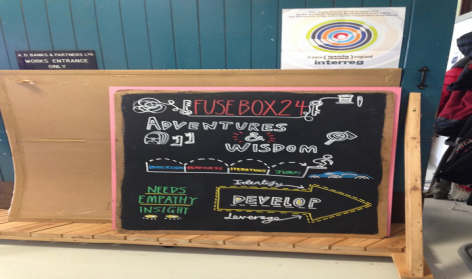 A. D. BANKS & PARTNERS LTD
WORKS ENTRANCE
ONLY
interreg
FUSEBOX24
ADVENTURES
&
WISDOM
ITERATIONS
JUMP!
NEEDS
EMPATHY
INSIGHT
Identify
DEVELOP
Leverage